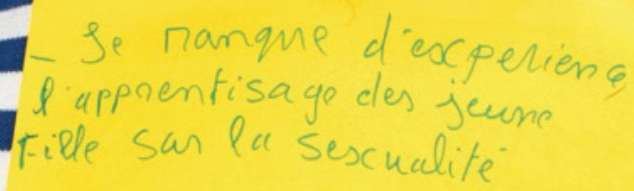 - Se manque d'experience
l'apprentisage des jeune
Fille sur la sexualité